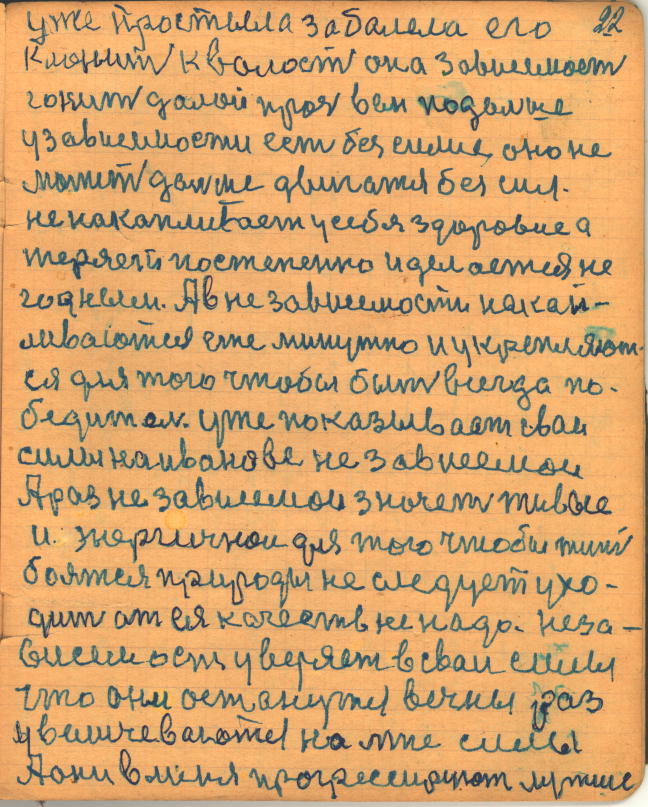 22
уже простыла забалела его
клонит кволост она зависемост
гонит далой проч вон подальше
у зависемости ест безсилие, оно не
может дальше двигатя без сил.
не накапливает у себя здоровие а
теряет и постепенно и делается не
годнем. А в не зависемости накап-
ливаются еже минутно и укрепляют-
ся для того чтобы быт всегда по-
бедител. уже показывает сваи
силы на иванове не зависемои
А раз не зависемои значет живые
и энергичнои для того чтобы жит
боятся природы не следует ухо-
дит от ея качеств не надо. Неза-
висемост уверяет в сваи силы
что они останутя вечны раз
увеличеваются на мне силы
А они в меня прогрессируют лутше